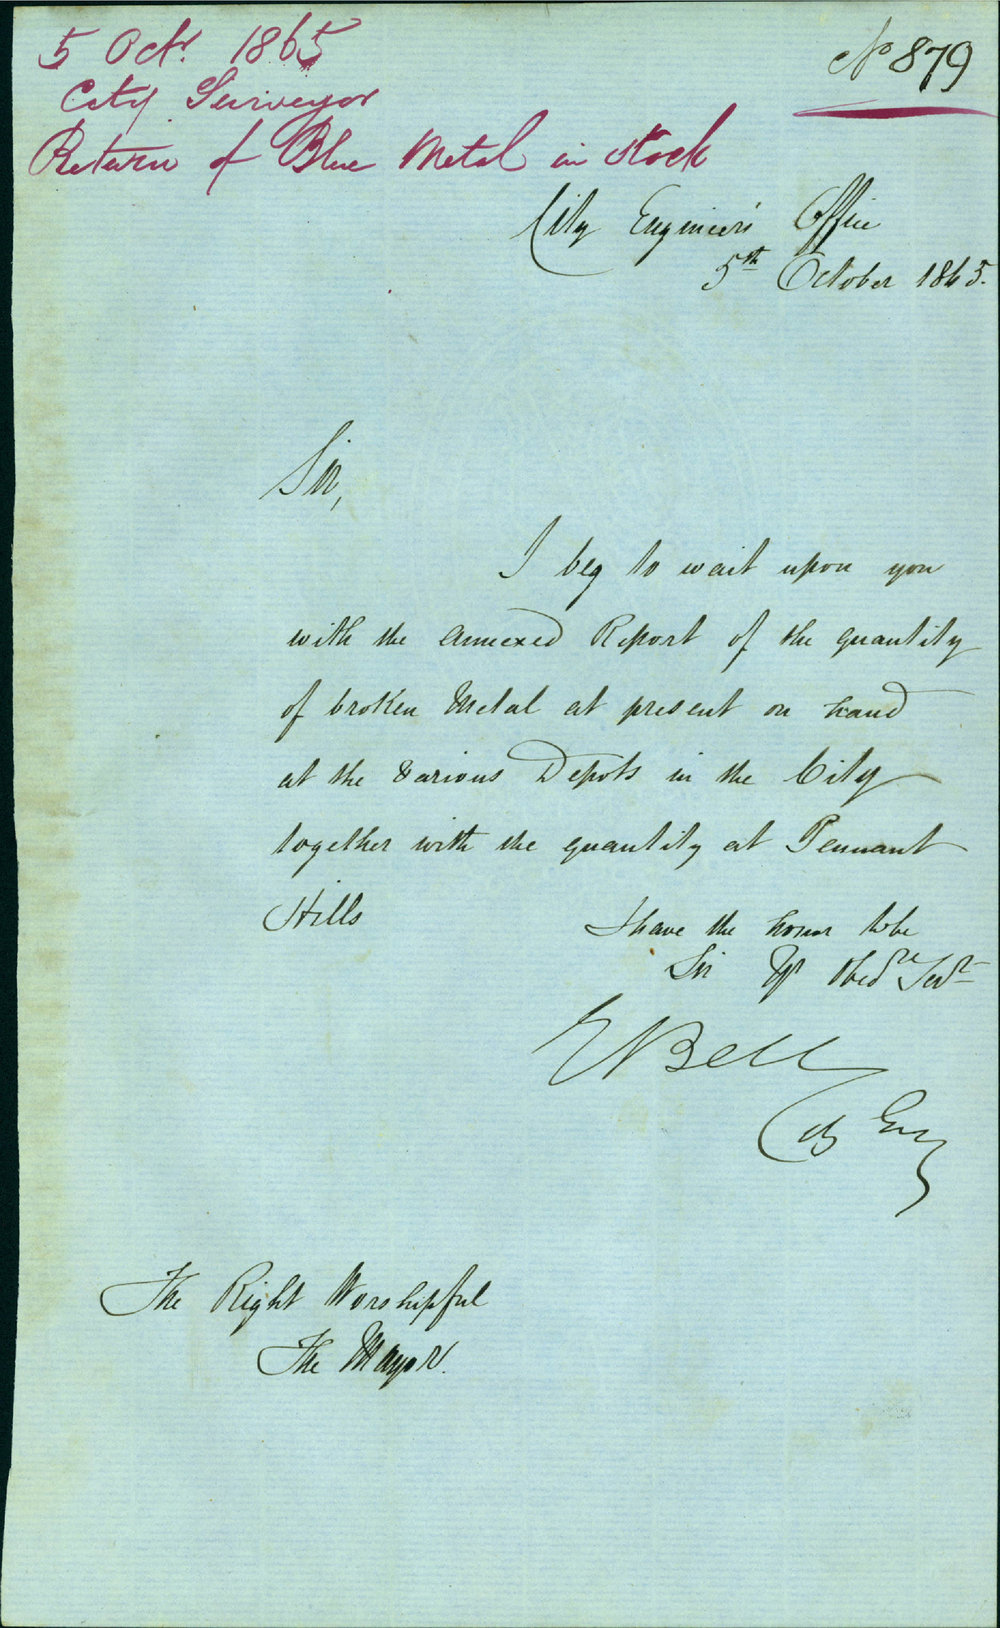 5 Octr. 1865
City Surveyor
Return of Blue Metal in Stock
No 879
City Engineer's Office
5th October 1865.
Sir,
I beg to wait upon you
with the annexed Report of the quantity
of broken Metal at present on hand
at the various Depots in the City
together with the quantity at Pennant
Hills
I have the honor to be
Sir Yr Obed Servt
E Bell
City Engr
The Right Worshipful
The Mayor.